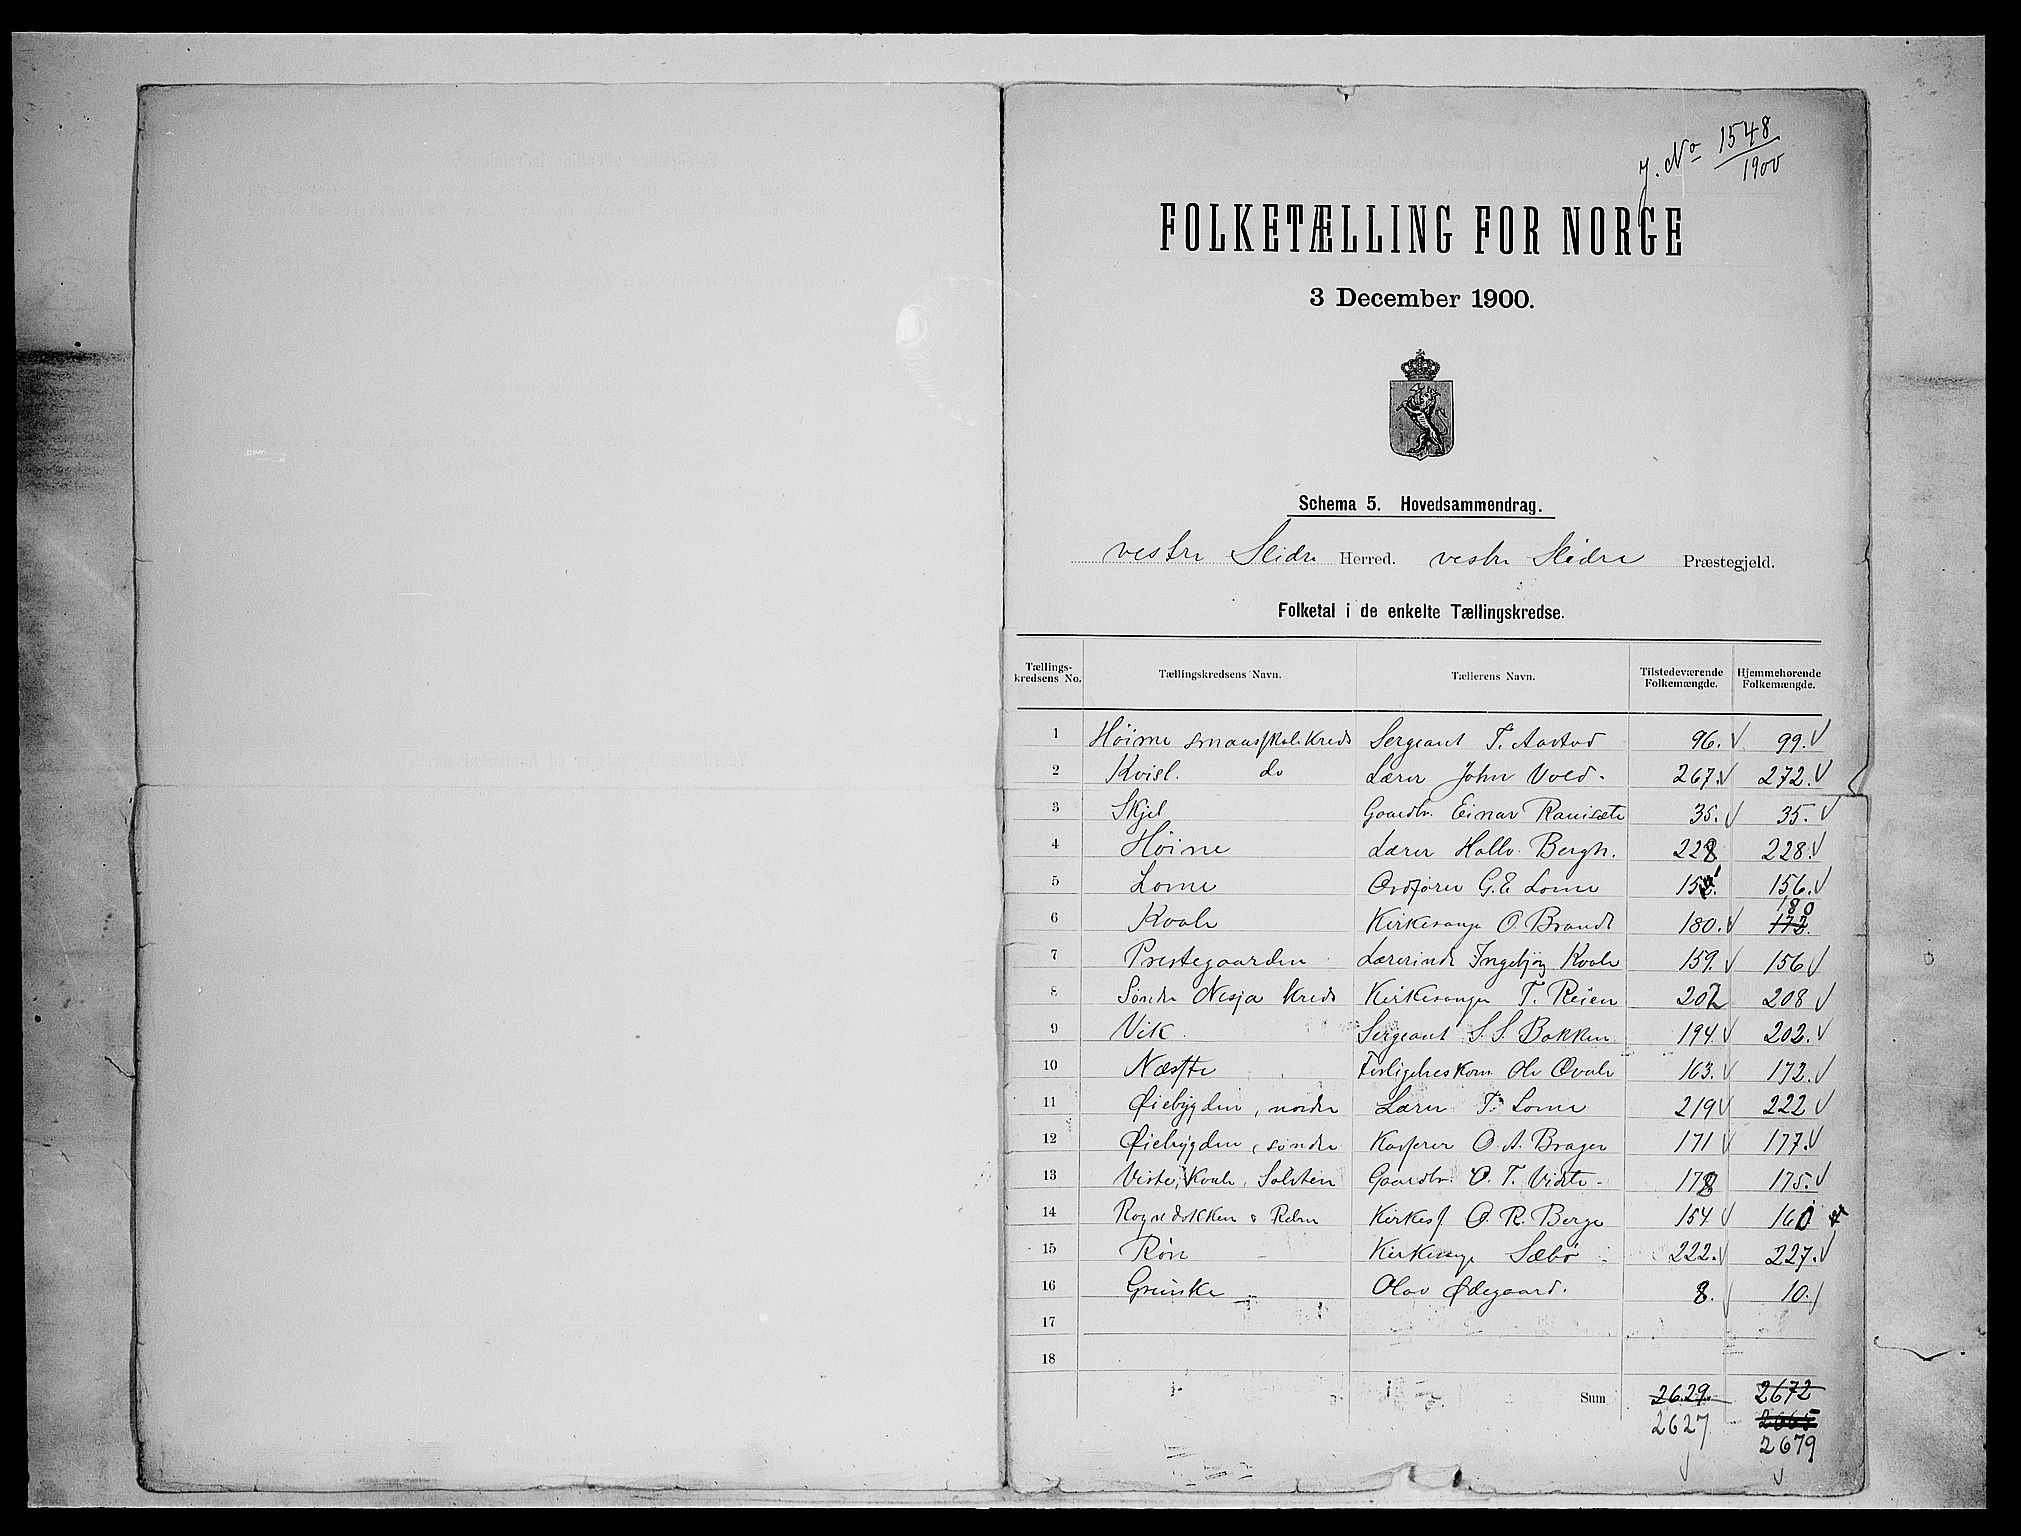 J. No 1548/1900
FOLKETÆLLING FOR NORGE
3 December 1900.
Schema 5. Hovedsammendrag.
vestre Slidre Herred. vestre Slidre Præstegjeld.
Folketal i de enkelte Tællingskredse.
Tællings-kredsens No. Tællingskredsens Navn. Tællerens Navn. Tilstedeværende Folkemængde. Hjemmehørende Folkemængde.
1 Høime smaaskolekreds Sergeant T. Aastad 96. 99.
2 Kvisl. do Lærer John Vold. 267. 272.
3 Skjel Gaardbr. Einar 35. 35.
4 Høine Lærer Hallv. Bergh. 228 228.
5 Lome Ordfører G. E. Lome 152. 156.
6 Kvale Kirkesanger O. Brandt 180. 172. 180
7 Prestegaarden Lærerinde Ingebjørg Kvale 159. 156
8 Søndre Nesja kreds Kirkesanger T. Reien 207 208
9 Vik. Sergeant S. S. Bakken 194 202.
10 Næste Forligelseskom. Ole Qvale 163. 172.
11 Øiebygden, nordre Lærer T. Lome 219 222
12 Øiebygden, søndre Kasserer O. A. Brager 171 177.
13 Viste, Kvale, Gaardbr. O. T. Viste 178 175.
14 Rognedokken & Kirkes O. R. Berge 154 160
15 Røn Kirkesanger Sæbø 222. 227.
16 Grunke Olav Ødegaard. 8. 10.
17
18
Sum 2629. 2672
2627 2665
2679